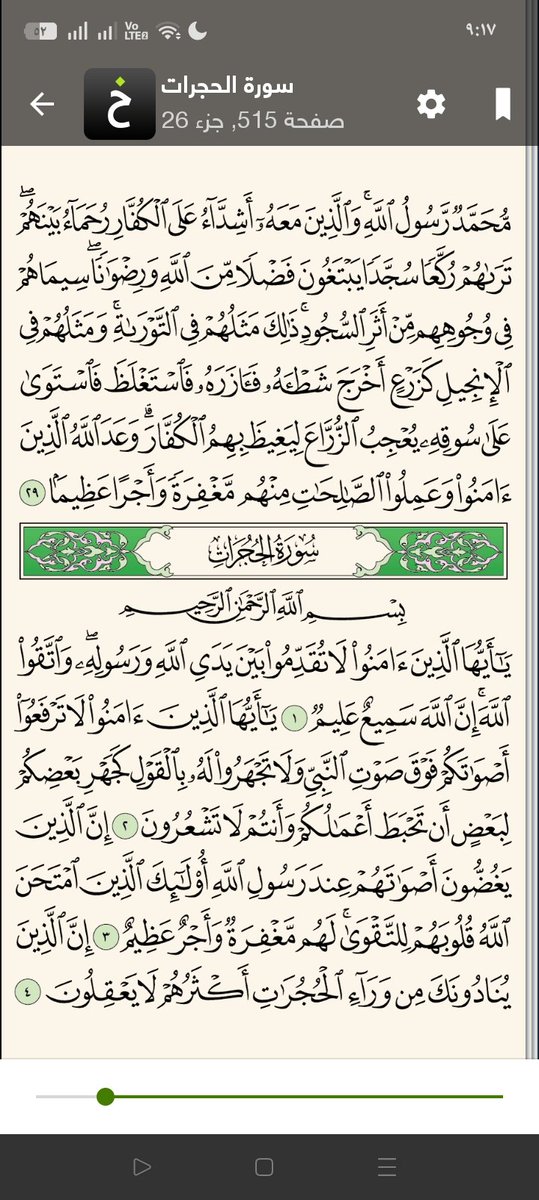 ٥٢ Vo LTE2 ٩:١٧
سورة الحجرات
صفحة 515, جزء 26
خ
مُّحَمَّدٌ رَّسُولُ ٱللَّهِۚ وَٱلَّذِينَ مَعَهُۥٓ أَشِدَّآءُ عَلَى ٱلْكُفَّارِ رُحَمَآءُ بَيْنَهُمْۖ
تَرَىٰهُمْ رُكَّعًا سُجَّدًا يَبْتَغُونَ فَضْلًا مِّنَ ٱللَّهِ وَرِضْوَٰنًاۖ سِيمَاهُمْ
فِى وُجُوهِهِم مِّنْ أَثَرِ ٱلسُّجُودِۚ ذَٰلِكَ مَثَلُهُمْ فِى ٱلتَّوْرَىٰةِۚ وَمَثَلُهُمْ فِى
ٱلْإِنجِيلِ كَزَرْعٍ أَخْرَجَ شَطْـَٔهُۥ فَـَٔازَرَهُۥ فَٱسْتَغْلَظَ فَٱسْتَوَىٰ
عَلَىٰ سُوقِهِۦ يُعْجِبُ ٱلزُّرَّاعَ لِيَغِيظَ بِهِمُ ٱلْكُفَّارَۗ وَعَدَ ٱللَّهُ ٱلَّذِينَ
ءَامَنُوا۟ وَعَمِلُوا۟ ٱلصَّٰلِحَٰتِ مِنْهُم مَّغْفِرَةً وَأَجْرًا عَظِيمًۢا ٢٩
سُورَةُ الحُجُرَاتِ
بِسْمِ ٱللَّهِ ٱلرَّحْمَٰنِ ٱلرَّحِيمِ
يَٰٓأَيُّهَا ٱلَّذِينَ ءَامَنُوا۟ لَا تُقَدِّمُوا۟ بَيْنَ يَدَىِ ٱللَّهِ وَرَسُولِهِۦۖ وَٱتَّقُوا۟
ٱللَّهَۚ إِنَّ ٱللَّهَ سَمِيعٌ عَلِيمٌ ١ يَٰٓأَيُّهَا ٱلَّذِينَ ءَامَنُوا۟ لَا تَرْفَعُوٓا۟
أَصْوَٰتَكُمْ فَوْقَ صَوْتِ ٱلنَّبِىِّ وَلَا تَجْهَرُوا۟ لَهُۥ بِٱلْقَوْلِ كَجَهْرِ بَعْضِكُمْ
لِبَعْضٍ أَن تَحْبَطَ أَعْمَٰلُكُمْ وَأَنتُمْ لَا تَشْعُرُونَ ٢ إِنَّ ٱلَّذِينَ
يَغُضُّونَ أَصْوَٰتَهُمْ عِندَ رَسُولِ ٱللَّهِ أُو۟لَٰٓئِكَ ٱلَّذِينَ ٱمْتَحَنَ
ٱللَّهُ قُلُوبَهُمْ لِلتَّقْوَىٰۚ لَهُم مَّغْفِرَةٌ وَأَجْرٌ عَظِيمٌ ٣ إِنَّ ٱلَّذِينَ
يُنَادُونَكَ مِن وَرَآءِ ٱلْحُجُرَٰتِ أَكْثَرُهُمْ لَا يَعْقِلُونَ ٤